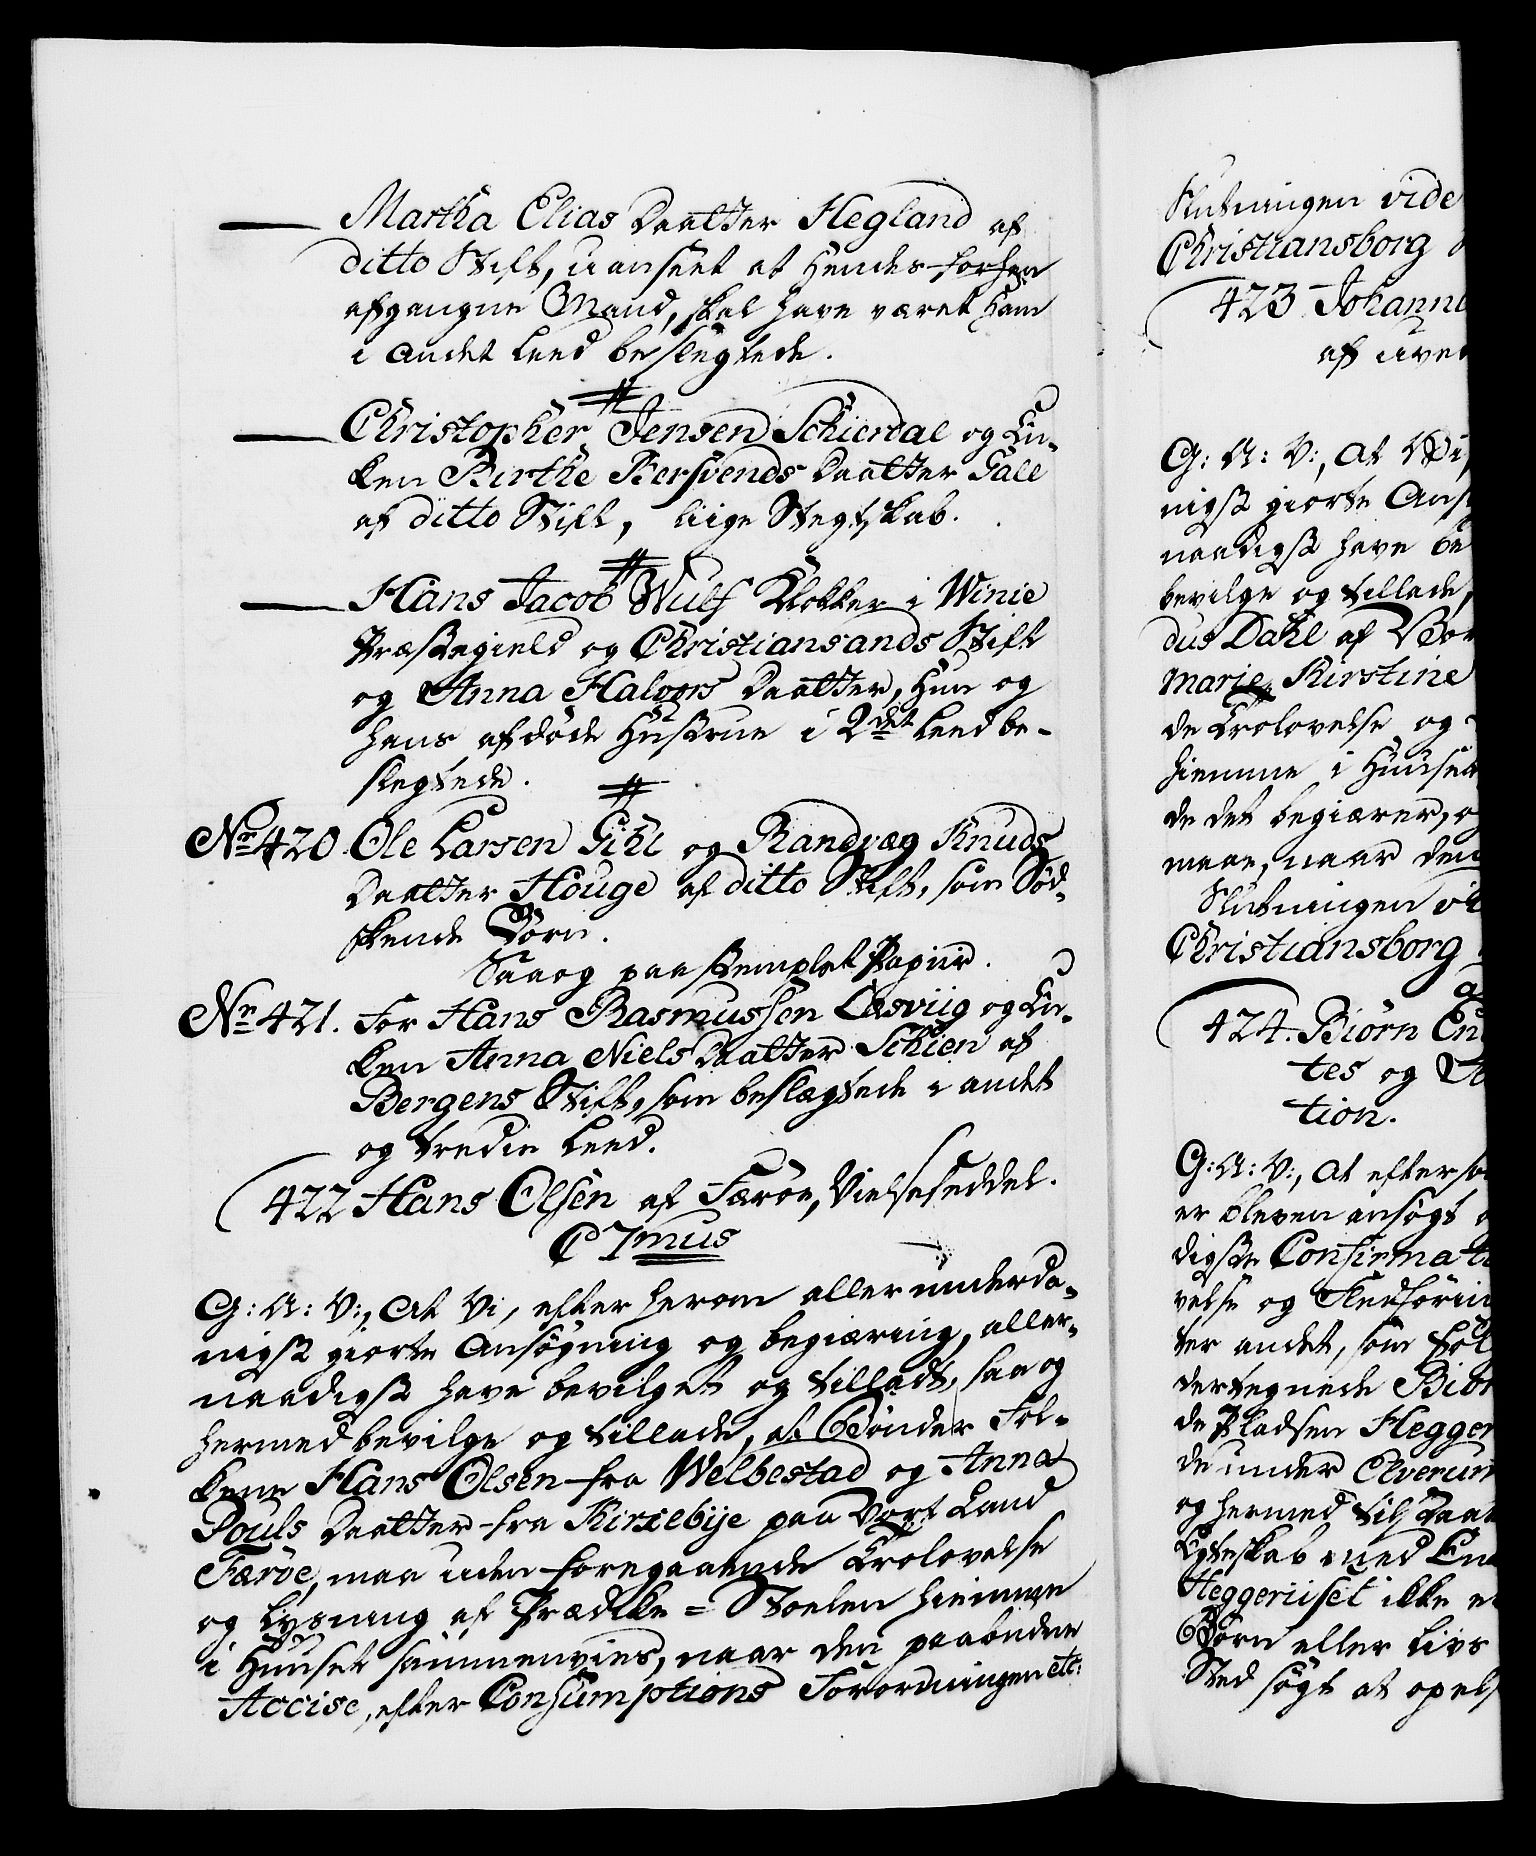 — Martha Elias Daatter Hegland af
ditto Stift, uanseet at Hendes forhen
afgangne Mand, skal have været ham
i andet Leed beslegtede.
— Christopher Jensen Schierdal og En-
ken Birthe Bersvends Daatter Gale
af ditto Stift, liige Slegtskab.
— Hans Jacob Wulf Klokker i Winie
Præstegield og Christiansands Stift
og Anna Halvors Daatter, Hun og
hans afdøde Hustrue i 2det Leed be-
slegtede.
No 420. Ole Larsen Gihl og Randvæg Knuds
Daatter Houge af ditto Stift, som Sød-
skende Børn.
Saaog paa stemplet Papiir.
No 421. For Hans Rasmussen Læsviig og En-
ken Anna Niels Daatter Schien af
Bergens Stift, som beslægtede i andet
og tredie Leed.
422 Hans Olsen af Færøe, Vielseseddel.
C 7mus
G: A: V:, At Vi, efter herom allerunderda-
nigst giorte Ansøgning og begiæring, aller-
naadigst have bevilget og tilladt, saa og
hermed bevilge og tillade, at Bønder Fol-
kene Hans Olsen fra Welbestad og Anna
Pouls Daatter fra Kirkebye paa Vort Land
Færøe, maa uden foregaaende Trolovelse
og Lysning af Prædike-Stoelen hiemme
i Huuset sammenvies, naar den paabudne
Accise, efter Consumptions Forordningen etc:
Slutningen vide
Christiansborg
423 Johanne
af uved
G: A: V:, At Vi,
nigst giorte Ans
naadigst have be
bevilge og tillade,
dus Dahl af Bor
Marie Kirstine
de Trolovelse og
hiemme i Huuset
de det begiærer, og
maae, naar den
Slutningen vi
Christiansborg
424. Biørn En
tes og
tion.
G: A: V:, At eftersom
er bleven ansøgt
digste Confirmati
velse og Stedføring
ter andet, som føl
dertegnede Biør
de Pladsen Hegger
de under Elverum
og hermed tilstaa
Egteskab med En
Heggeriiset ikke
Børn eller Livs
Sted søgt at opels